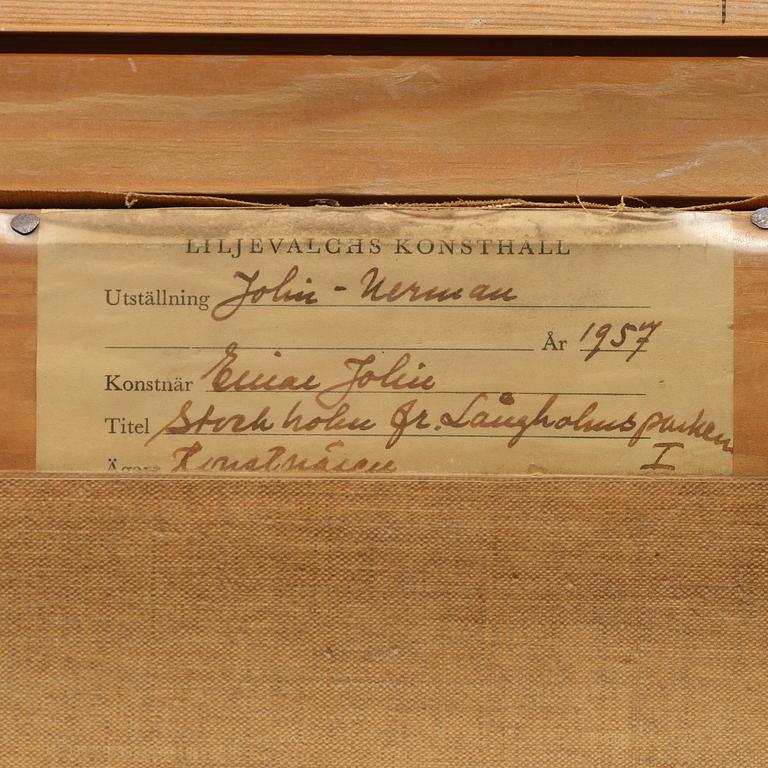 LILJEVALCHS KONSTHALL
Utställning John - Nerman
År 1957
Konstnär Einar Jolin
Titel Stockholm fr. Långholmsparken
I
Ägare Konstnären